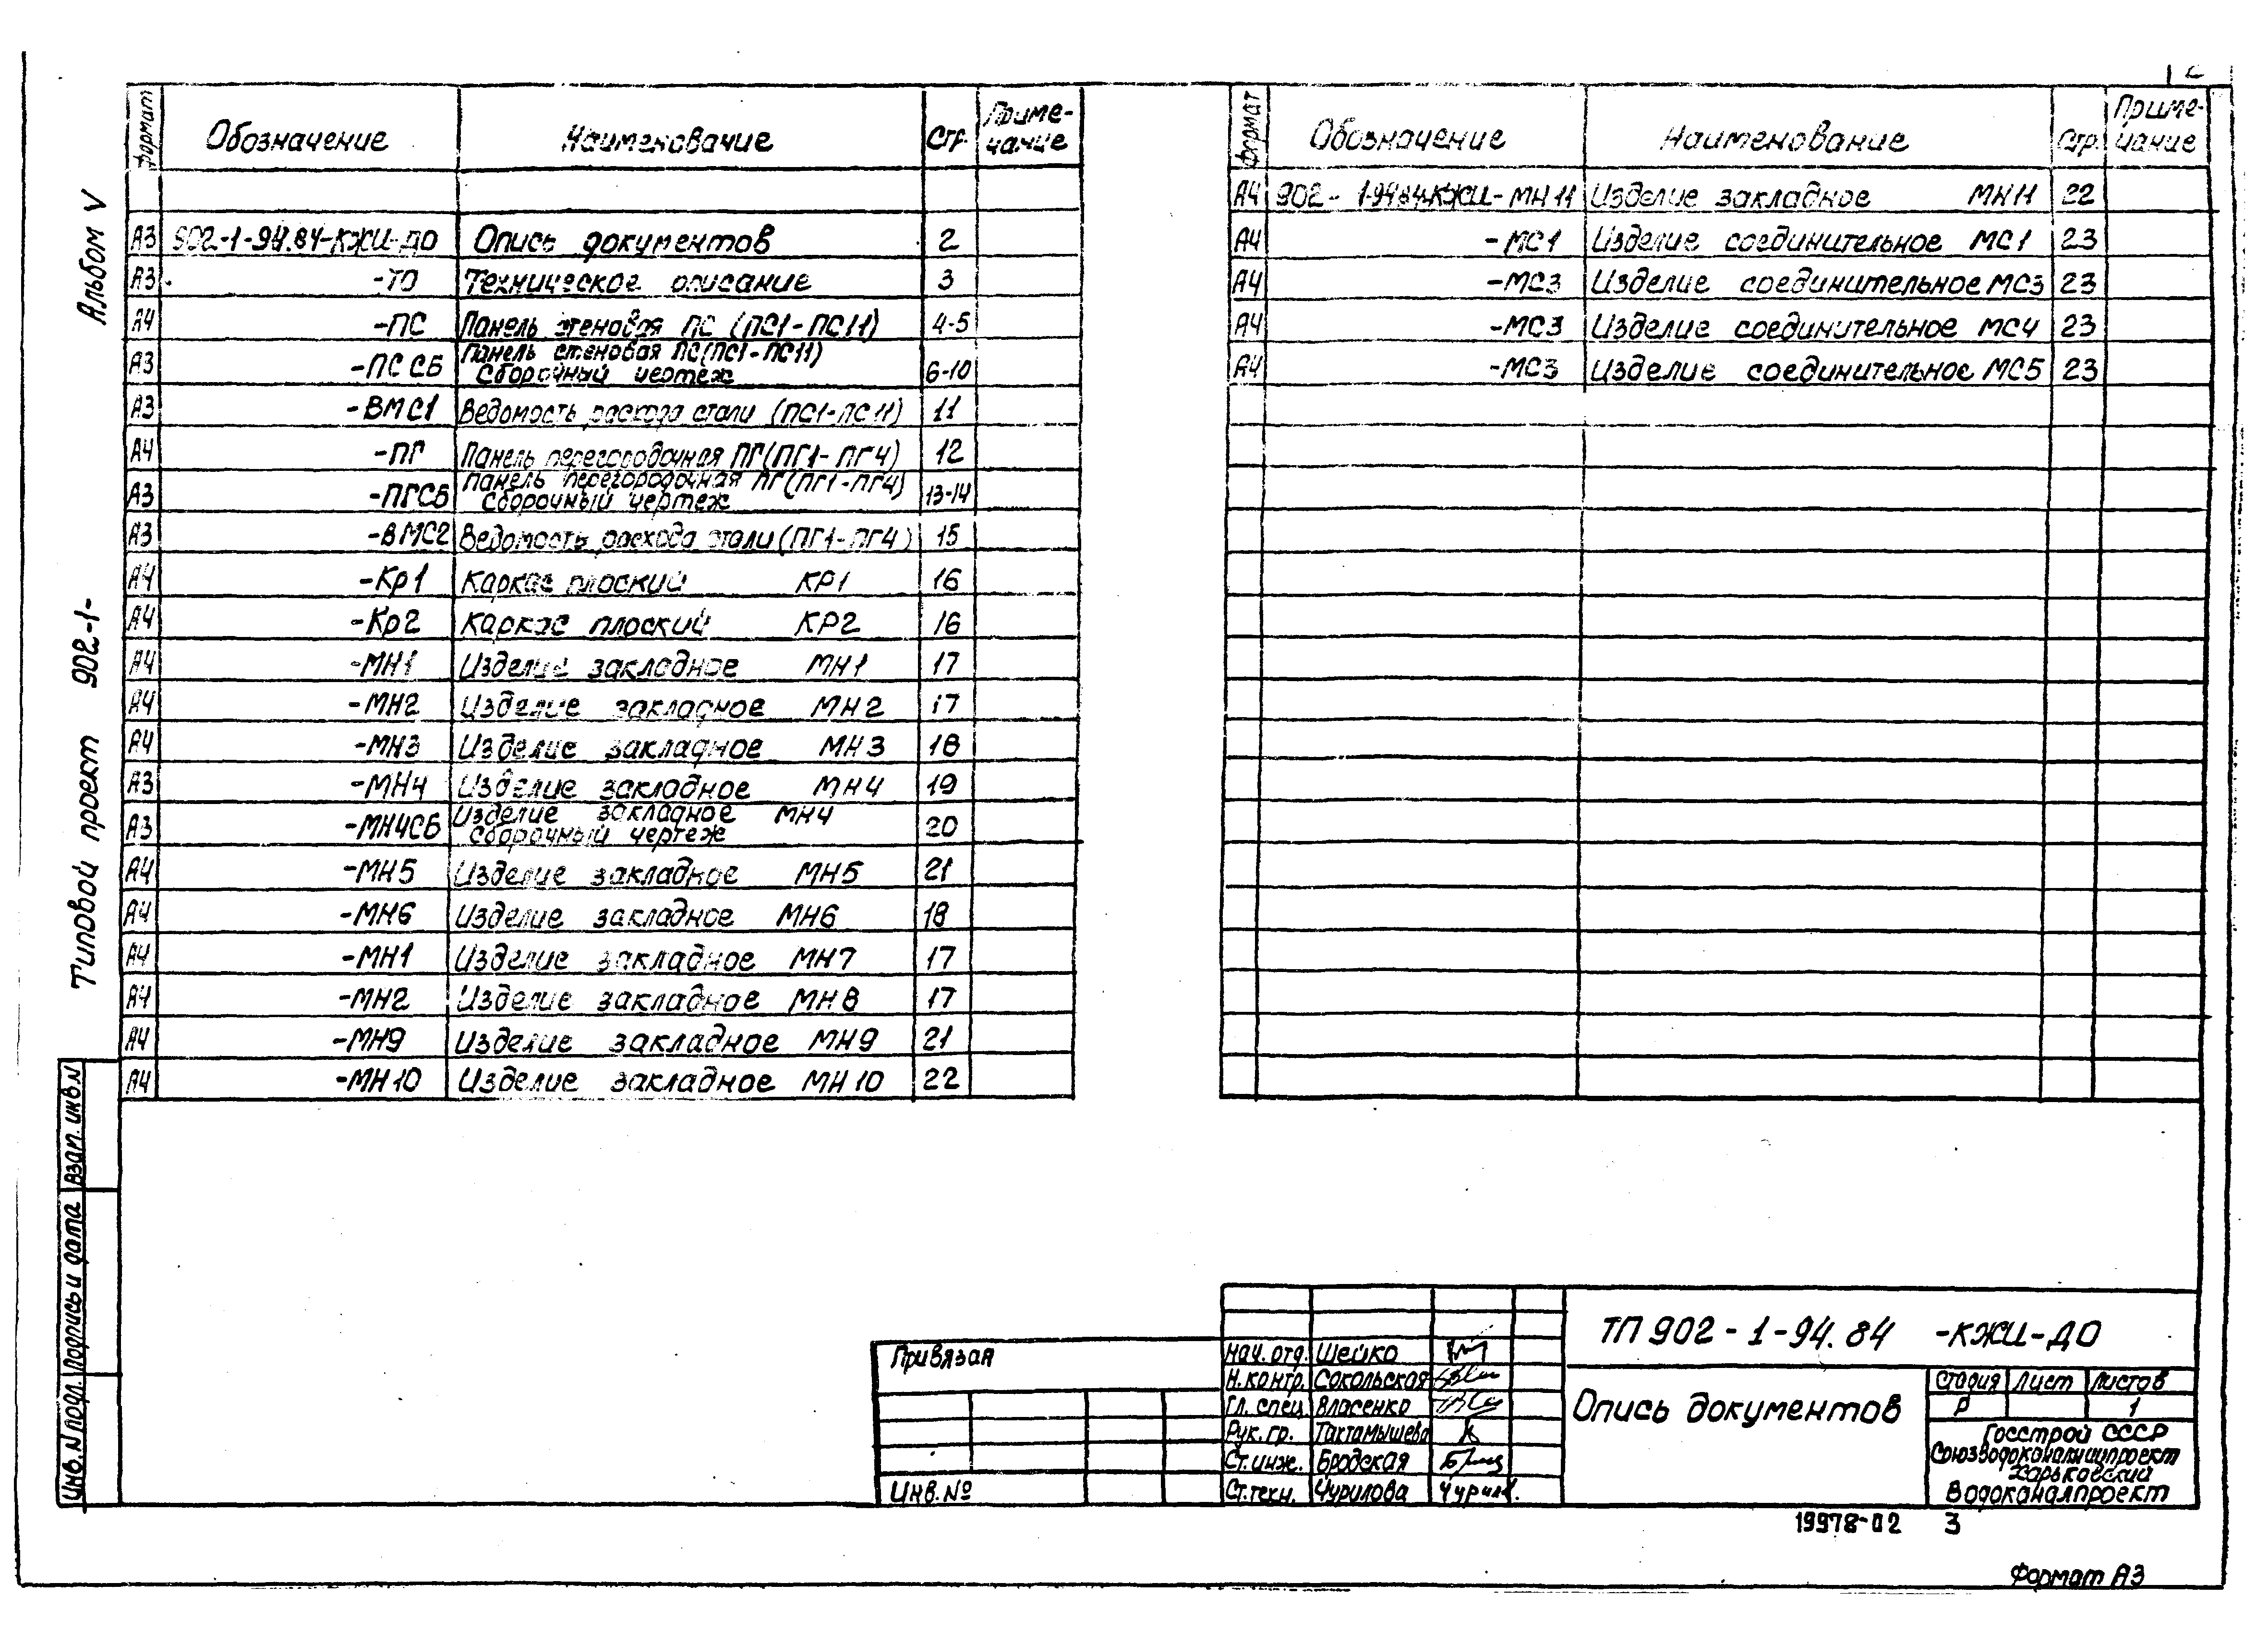 Альбом V
Типовой проект 902-1-
Формат Обозначение Наименование Стр. Приме-
чание
А3 902-1-94.84-КЖИ-ДО Опись документов 2
А3 -ТО Техническое описание 3
А4 -ПС Панель стеновая ПС (ПС1-ПС11) 4-5
А3 -ПС СБ Панель стеновая ПС(ПС1-ПС11)
Сборочный чертеж 6-10
А3 -ВМС1 Ведомость расхода стали (ПС1-ПС11) 11
А4 -ПГ Панель перегородочная ПГ(ПГ1-ПГ4) 12
А3 -ПГСБ Панель перегородочная ПГ(ПГ1-ПГ4)
Сборочный чертеж 13-14
А3 -ВМС2 Ведомость расхода стали (ПГ1-ПГ4) 15
А4 -Кр1 Каркас плоский КР1 16
А4 -Кр2 Каркас плоский КР2 16
А4 -МН1 Изделие закладное МН1 17
А4 -МН2 Изделие закладное МН2 17
А4 -МН3 Изделие закладное МН3 18
А3 -МН4 Изделие закладное МН4 19
А3 -МН4СБ Изделие закладное МН4
Сборочный чертеж 20
А4 -МН5 Изделие закладное МН5 21
А4 -МН6 Изделие закладное МН6 18
А4 -МН1 Изделие закладное МН7 17
А4 -МН2 Изделие закладное МН8 17
А4 -МН9 Изделие закладное МН9 21
А4 -МН10 Изделие закладное МН10 22
Формат Обозначение Наименование Стр. Приме-
чание
А4 902-1-94.84.КЖИ-МН11 Изделие закладное МН11 22
А4 -МС1 Изделие соединительное МС1 23
А4 -МС3 Изделие соединительное МС3 23
А4 -МС3 Изделие соединительное МС4 23
А4 -МС3 Изделие соединительное МС5 23
Инв.N подл. Подпись и дата Взам. инв.N
Привязан
Инв. №
Нач. отд. Шейко
Н. контр. Сокольская
Гл. спец. Власенко
Рук. гр. Тахтамышева
Ст. инж. Бродская
Ст. техн. Чурилова
ТП 902-1-94.84 -КЖИ-ДО
Опись документов
Стадия Лист Листов
Р 1
Госстрой СССР
Союзводоканалниипроект
Харьковский
Водоканалпроект
19978-02 3
Формат А3